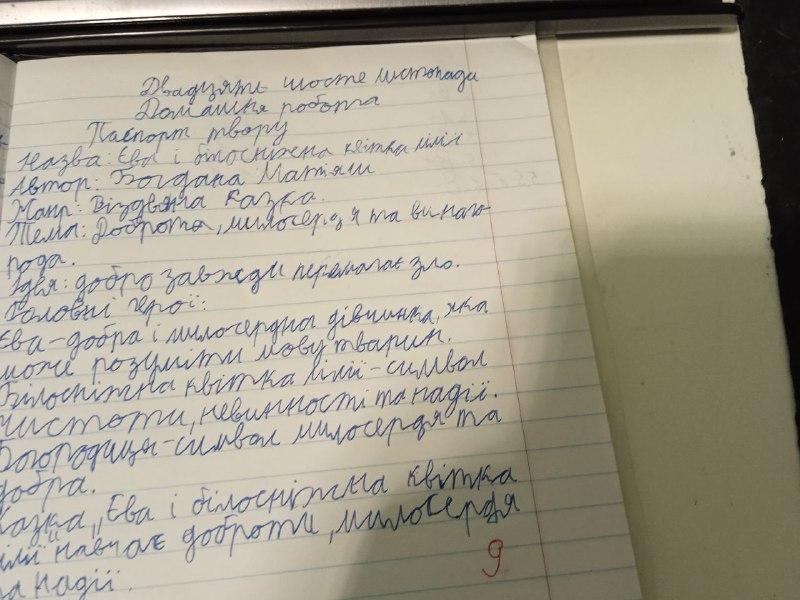 Двадцять шосте листопада
Домашня робота
Паспорт твору
Назва: Єва і білосніжна квітка лілії
Автор: Богдана Матіяш
Жанр: Різдвяна казка.
Тема: Доброта, милосердя та винаго-
рода.
Ідея: добро завжди перемагає зло.
Головні герої:
Єва - добра і милосердна дівчинка, яка
може розуміти мову тварин.
Білосніжна квітка лілії - символ
чистоти, невинності та надії.
Богородиця - символ милосердя та
добра.
Казка „Єва і білосніжна квітка
лілії" навчає доброти, милосердя
та надії.
9